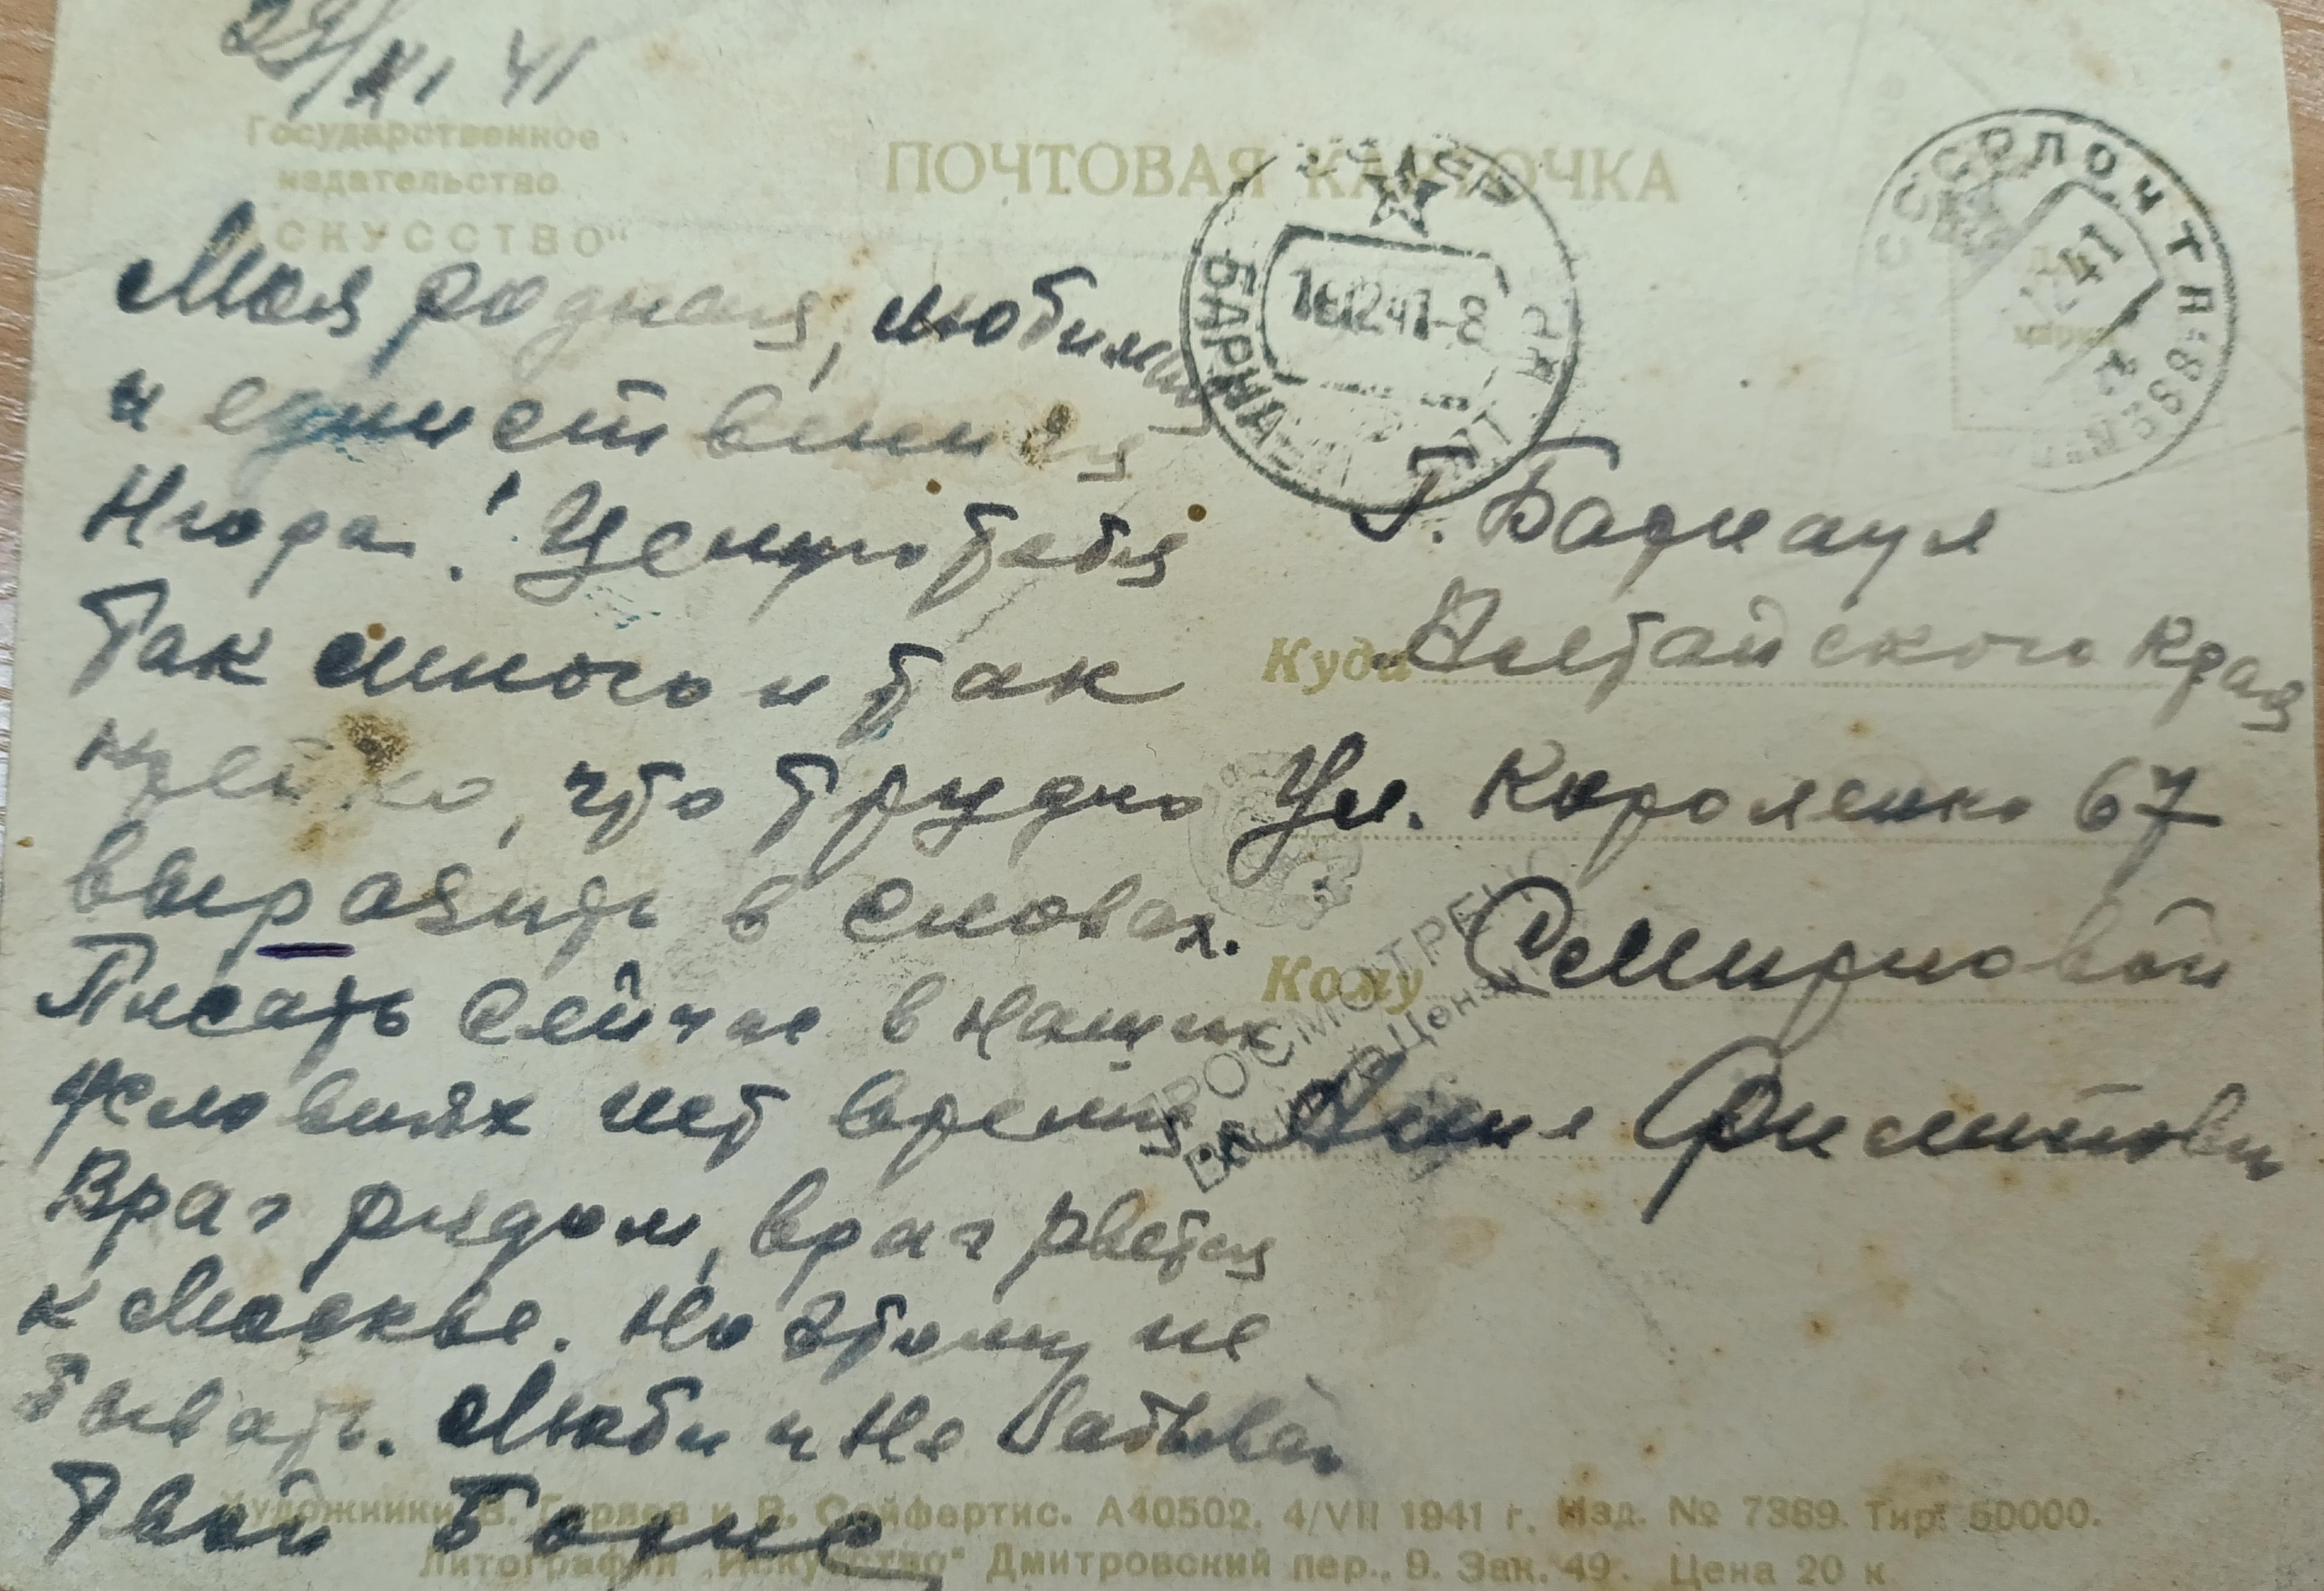 29/XI 41
Государственное
издательство
ИСКУССТВО"
ПОЧТОВАЯ КАРТОЧКА
БАРНАУЛ
16 12 41-8
СССР ПОЛ. ПОЧТ.
41
Моя родная, любимая
и единственная
! Целую тебя
так много и так
крепко, что трудно
выразить в словах.
Писать сейчас в наших
условиях нет время
Враг рядом, враг рвется
к Москве. Но этому не
бывать. Люби и не забывай
Твой Боря
г. Барнаул
Куда Алтайского края
Ул. Короленко 67
Кому Смирновой
Анне
ПРОСМОТРЕНО
Военной Цензурой
Художники В. Горяев и В. Сойфертис. А40502. 4/VII 1941 г. Изд. № 7389. Тир. 50000.
Литография „Искусство" Дмитровский пер., 9. Зак. 49. Цена 20 к